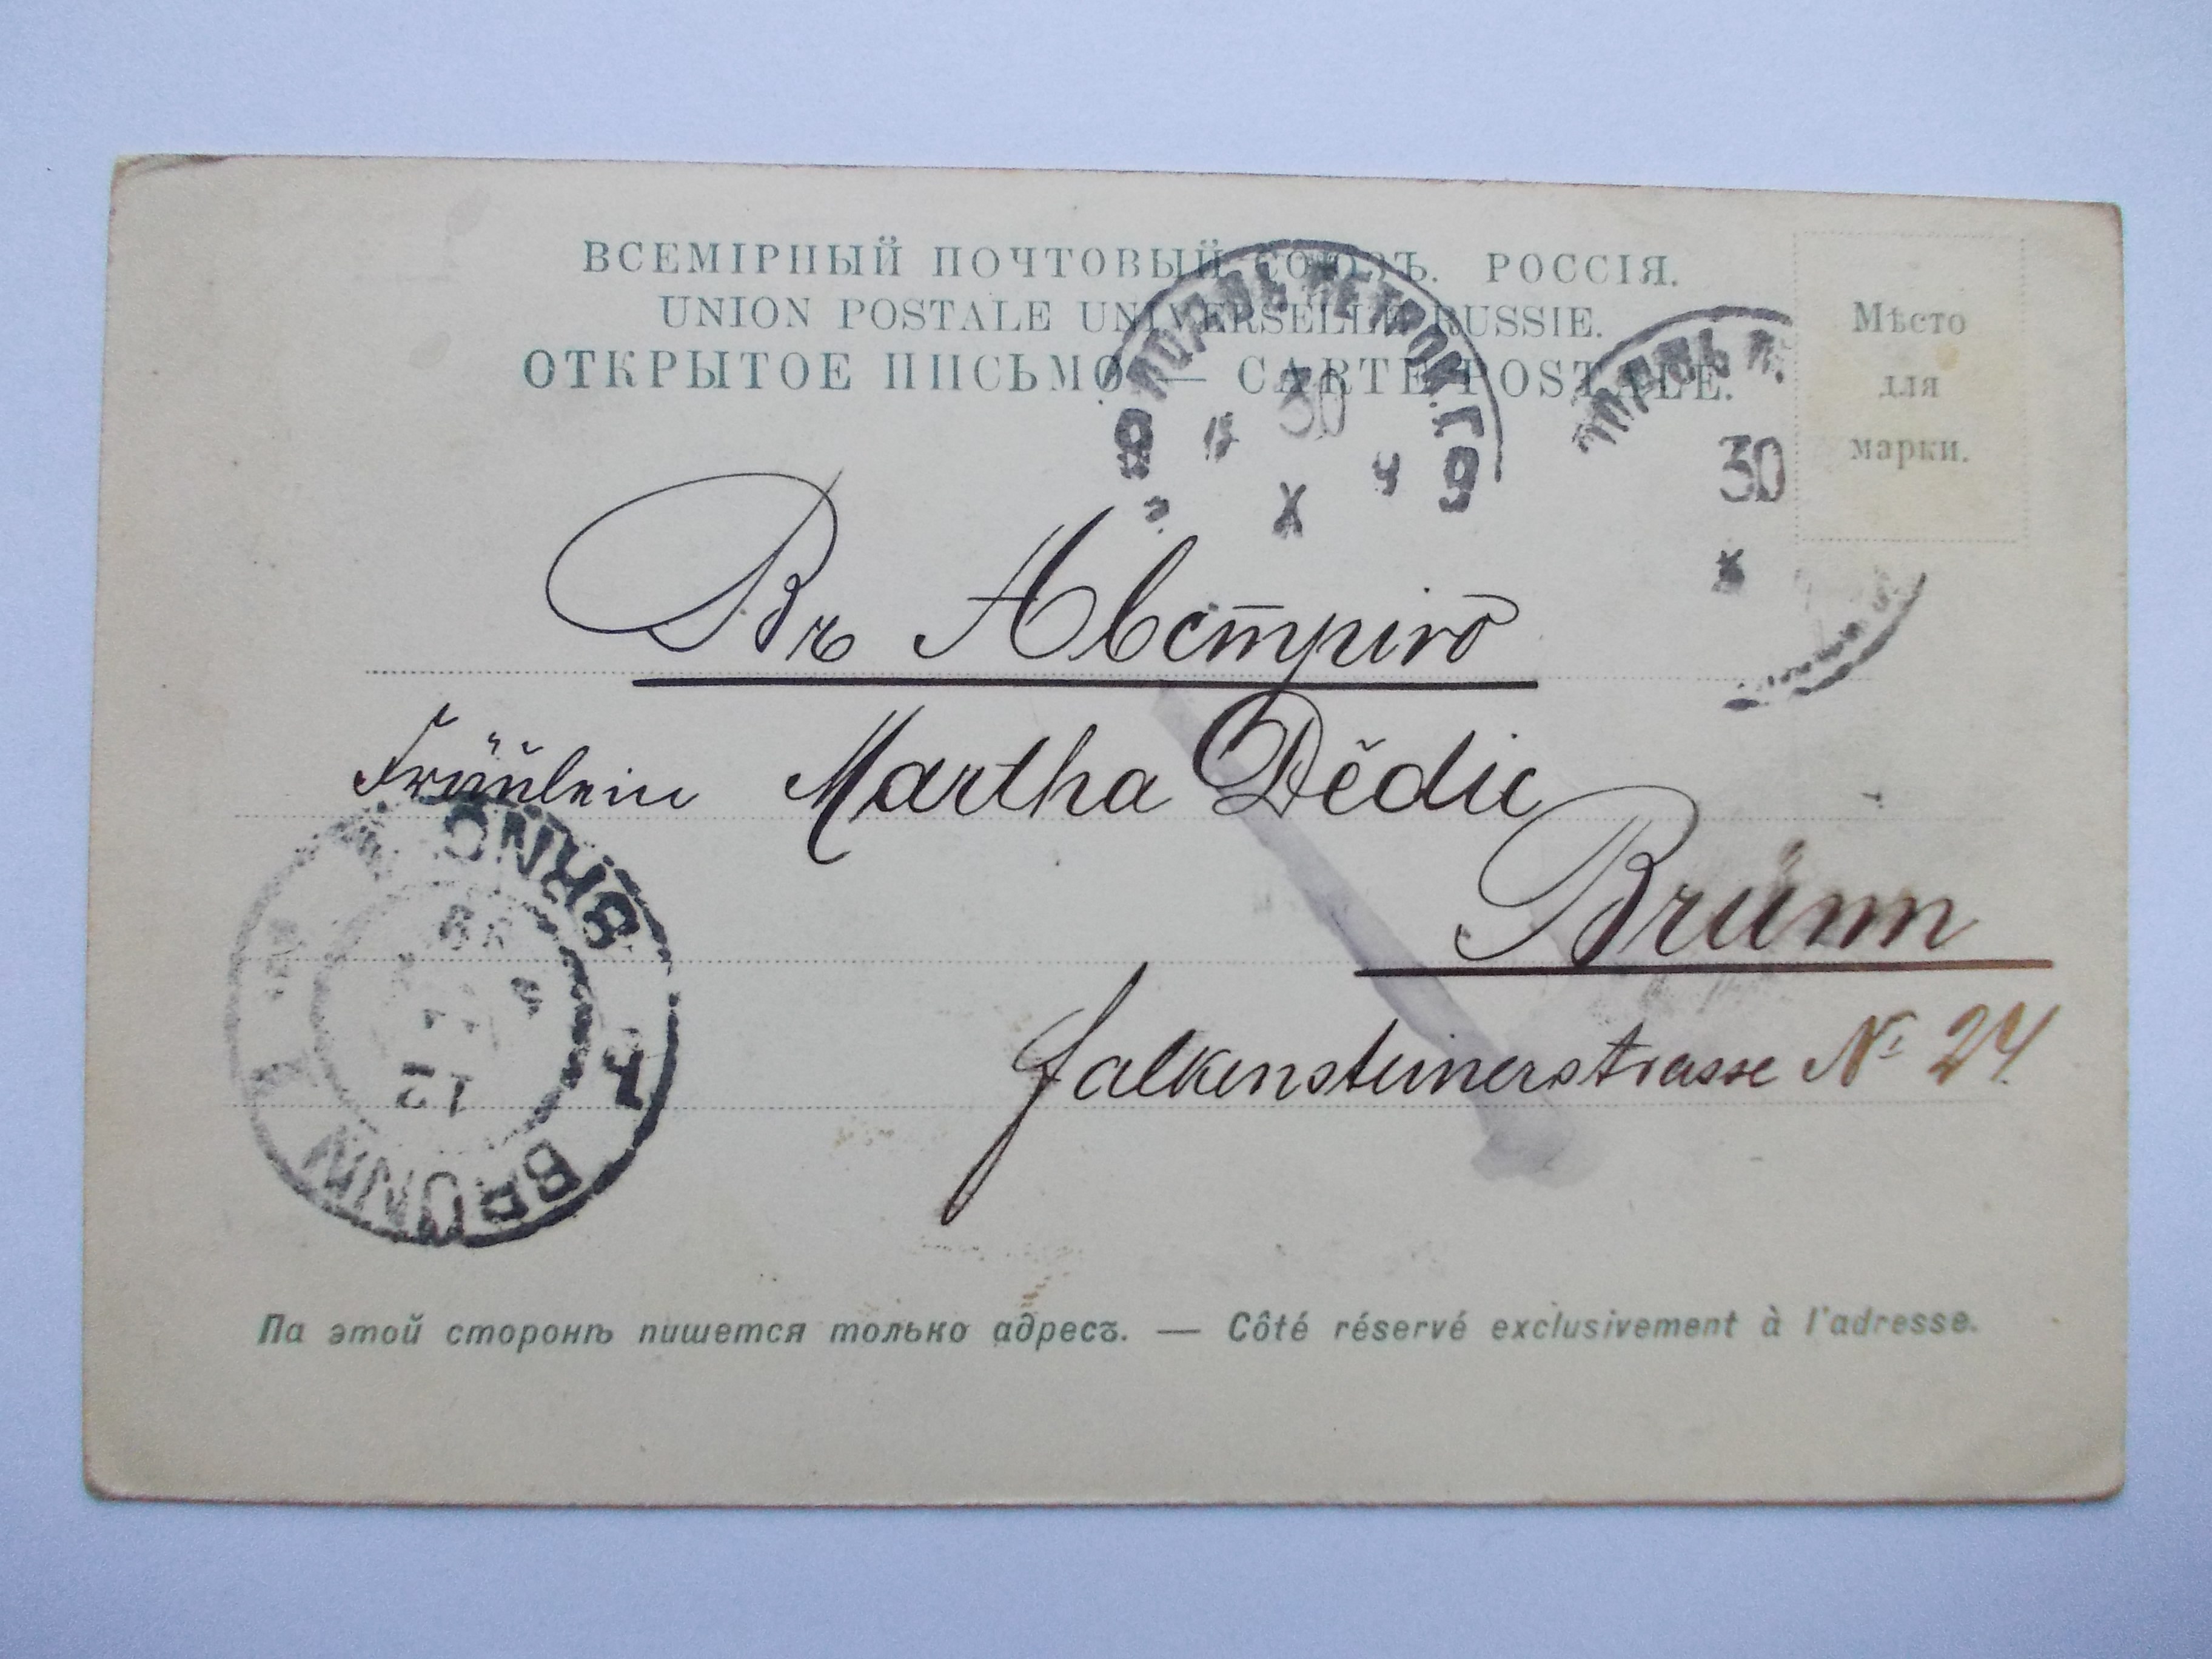 ВСЕМІРНЫЙ ПОЧТОВЫЙ СОЮЗЪ. РОССІЯ.
UNION POSTALE UNIVERSELLE RUSSIE.
ОТКРЫТОЕ ПИСЬМО — CARTE POSTALE.
Мѣсто
для
марки.
30
X
30
Въ Австрію
Fräulein Martha Dědic
Brünn
Falkensteinerstrasse № 24.
BRNO
12
BRÜNN
На этой сторонѣ пишется только адресъ. — Côté réservé exclusivement à l'adresse.